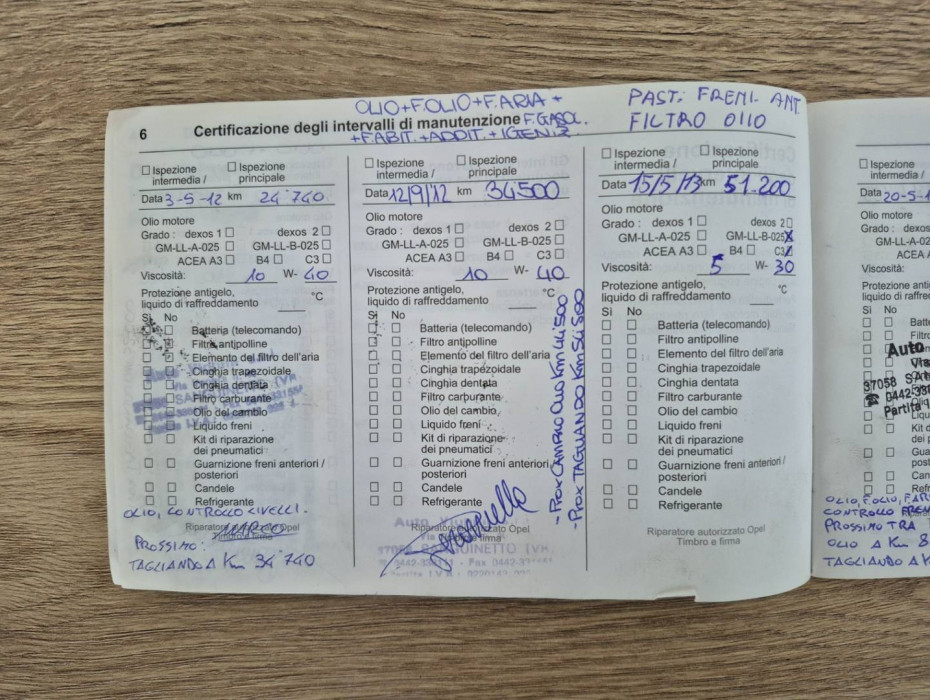 OLIO+F.OLIO+F.ARIA+
6 Certificazione degli intervalli di manutenzione F.GASOL.
+F.ABIT.+ADDIT.+IGENIZ.
PAST. FRENI. ANT.
FILTRO OLIO
Ispezione intermedia / Ispezione principale
Data 3-5-12 km 24'740
Olio motore
Grado : dexos 1 dexos 2
GM-LL-A-025 GM-LL-B-025
ACEA A3 B4 C3
Viscosità: 10 W- 40
Protezione antigelo, °C
liquido di raffreddamento
Sì No
Batteria (telecomando)
Filtro antipolline
Elemento del filtro dell'aria
Cinghia trapezoidale
Cinghia dentata
Filtro carburante
Olio del cambio
Liquido freni
Kit di riparazione
dei pneumatici
Guarnizione freni anteriori /
posteriori
Candele
Refrigerante
OLIO, CONTROLLO LIVELLI.
Riparatore autorizzato Opel
Timbro e firma
PROSSIMO:
TAGLIANDO A Km 34'740
Ispezione intermedia / Ispezione principale
Data 12/9/12 km 34500
Olio motore
Grado : dexos 1 dexos 2
GM-LL-A-025 GM-LL-B-025
ACEA A3 B4 C3
Viscosità: 10 W- 40
Protezione antigelo, °C
liquido di raffreddamento
Sì No
Batteria (telecomando)
Filtro antipolline
Elemento del filtro dell'aria
Cinghia trapezoidale
Cinghia dentata
Filtro carburante
Olio del cambio
Liquido freni
Kit di riparazione
dei pneumatici
Guarnizione freni anteriori /
posteriori
Candele
Refrigerante
Riparatore autorizzato Opel
Timbro e firma
SANGUINETTO (VR
- PROX CAMBIO OLIO Km 44500
- PROX TAGLIANDO Km 54500
Ispezione intermedia / Ispezione principale
Data 15/5/13 km 51.200
Olio motore
Grado : dexos 1 dexos 2
GM-LL-A-025 GM-LL-B-025 X
ACEA A3 B4 C3
Viscosità: 5 W- 30
Protezione antigelo, °C
liquido di raffreddamento
Sì No
Batteria (telecomando)
Filtro antipolline
Elemento del filtro dell'aria
Cinghia trapezoidale
Cinghia dentata
Filtro carburante
Olio del cambio
Liquido freni
Kit di riparazione
dei pneumatici
Guarnizione freni anteriori /
posteriori
Candele
Refrigerante
Riparatore autorizzato Opel
Timbro e firma
Ispezione
intermedia /
Data 20-5-1
Olio motore
Grado : de
GM-LL-A-02
ACEA
Viscosità:
Protezione anti
liquido di raffre
Sì No
Auto
Via
37058 SAN
☎ 0442-33
Partita
Kit d
dei p
Gua
post
Can
Refr
OLIO, F.OLIO, F.ARI
CONTROLLO FREN
PROSSIMO TRA
OLIO A Km 8
TAGLIANDO A K